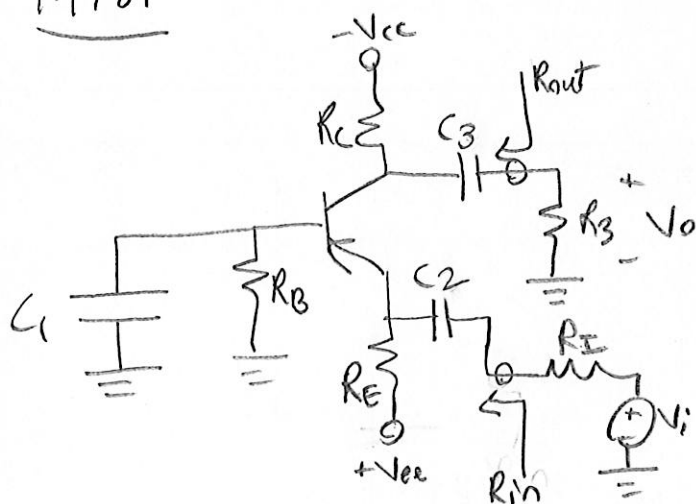 -Vcc
Rout
Rc
C3
+
R3
Vo
-
C1
RB
C2
RE
RI
+
-
Vi
+Vee
Rin